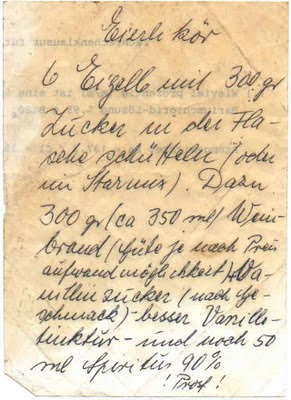 Eierlikör
6 Eigelb mit 300 gr
Zucker in der Fla-
sche schütteln (oder
im Starmix). Dazu
300 gr (ca 350 ml) Wein-
brand (Güte je nach Preis
aufwandmöglichkeit) Va-
nillinzucker (nach Ge-
schmack) - besser Vanille-
tinktur - und noch 50
ml Spiritus 90%
! Prost !